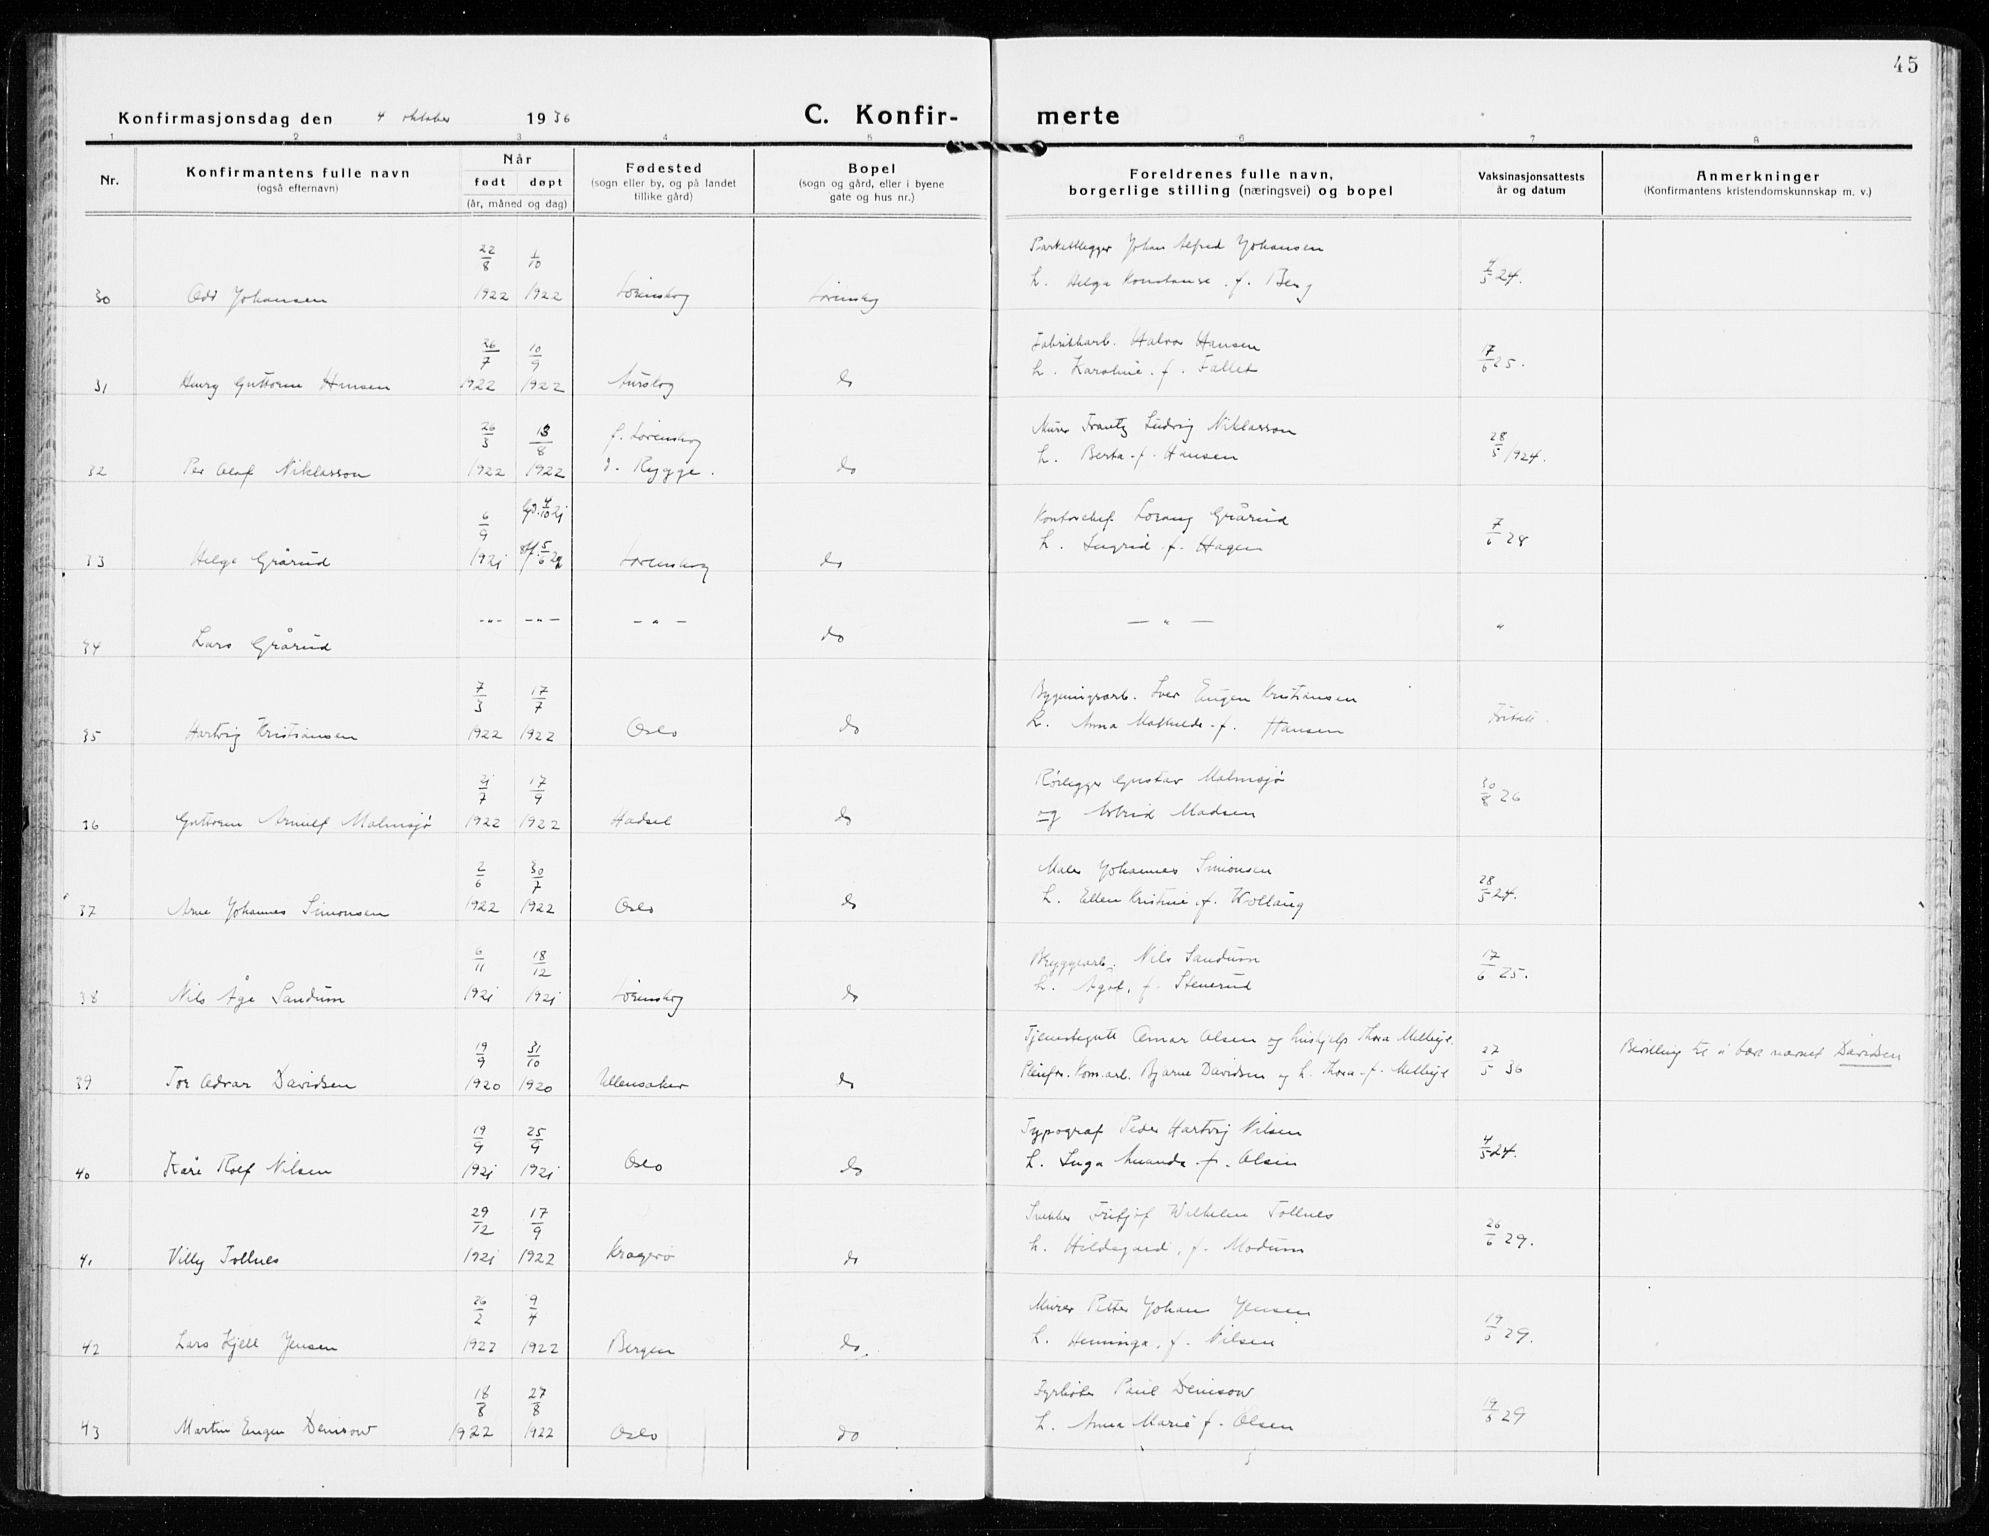 45
Konfirmasjonsdag den 4 oktober 1936
C. Konfir- merte
1 2 3 4 5 6 7 8
Nr.
Konfirmantens fulle navn
(også efternavn)
Når
født døpt
(år, måned og dag)
Fødested
(sogn eller by, og på landet
tillike gård)
Bopel
(sogn og gård, eller i byene
gate og hus nr.)
Foreldrenes fulle navn,
borgerlige stilling (næringsvei) og bopel
Vaksinasjonsattests
år og datum
Anmerkninger
(Konfirmantens kristendomskunnskap m. v.)
22/8 1/10 Parkettlegger Johan Alfred Johansen
30 Odd Johansen 1922 1922 Lørenskog Lørenskog h. Helga Konstanse . f. Berg 4/5 24.
26/7 10/9 Fabrikkarb. Halvor Hansen
31 Henry Guttorm Hansen 1922 1922 Aurskog do h. Karoline . f. Fallet 17/6 25.
26/3 13/8 f. Lørenskog Murer Frantz Ludvig Niklasson
32 Per Olaf Niklasson 1922 1922 d. Rygge . do h. Berta . f. Hansen 28/5 1924.
6/9 Gd. 4/10 21 Kontorchef Lorang Grårud
33 Helge Grårud 1921 5/6 22 Lørenskog do h. Ingrid . f. Hagen 7/6 28
-"- -"- - " - - " - "
34 Lars Grårud do
7/3 17/7 Bygningsarb. Iver Eugen Kristiansen
35 Hartvig Kristiansen 1922 1922 Oslo do h. Anna Mathilde . f. Hansen
21/7 17/9 Rørlegger Gustav Malmsjø
36 Guttorm Arnulf Malmsjø 1922 1922 Hadsel do og Astrid Madsen 30/8 26
2/6 30/7 Maler Johannes Simonsen
37 Arne Johannes Simonsen 1922 1922 Oslo do h. Ellen Kristine . f. Wollaug 28/5 24.
6/11 18/12 Bryggearb. Nils Sandum
38 Nils Åge Sandum 1921 1921 Lørenskog do h. Agot, f. Stenerud 17/6 25.
19/9 31/10 Tjenestegutt Omar Olsen og hushjelp Thora Melbye. 27/5 36 Bevilling til å bære navnet Davidsen
39 Tor Odvar Davidsen 1920 1920 Ullensaker do Pleiefor. Kom.arb. Bjarne Davidsen og h. Thora . f. Melbye
19/9 25/9 Typograf Peder Hartvig Nilsen
40 Kåre Rolf Nilsen 1921 1921 Oslo do h. Inga Amanda . f. Olsen 4/5 24.
29/12 17/9 Snekker Fritjof Wilhelm Tollnes
41 Villy Tollnes 1921 1922 Kragerø do h. Hildegard . f. Modum 26/6 29.
26/2 9/4 Murer Petter Johan Jensen
42 Lars Kjell Jensen 1922 1922 Bergen do. h. Henninga . f. Nilsen 19/6 29.
18/8 27/8 Fyrbøter Paul Denisow
43 Martin Eugen Denisow 1922 1922 Oslo do h. Anna Marie f. Olsen 19/6 29